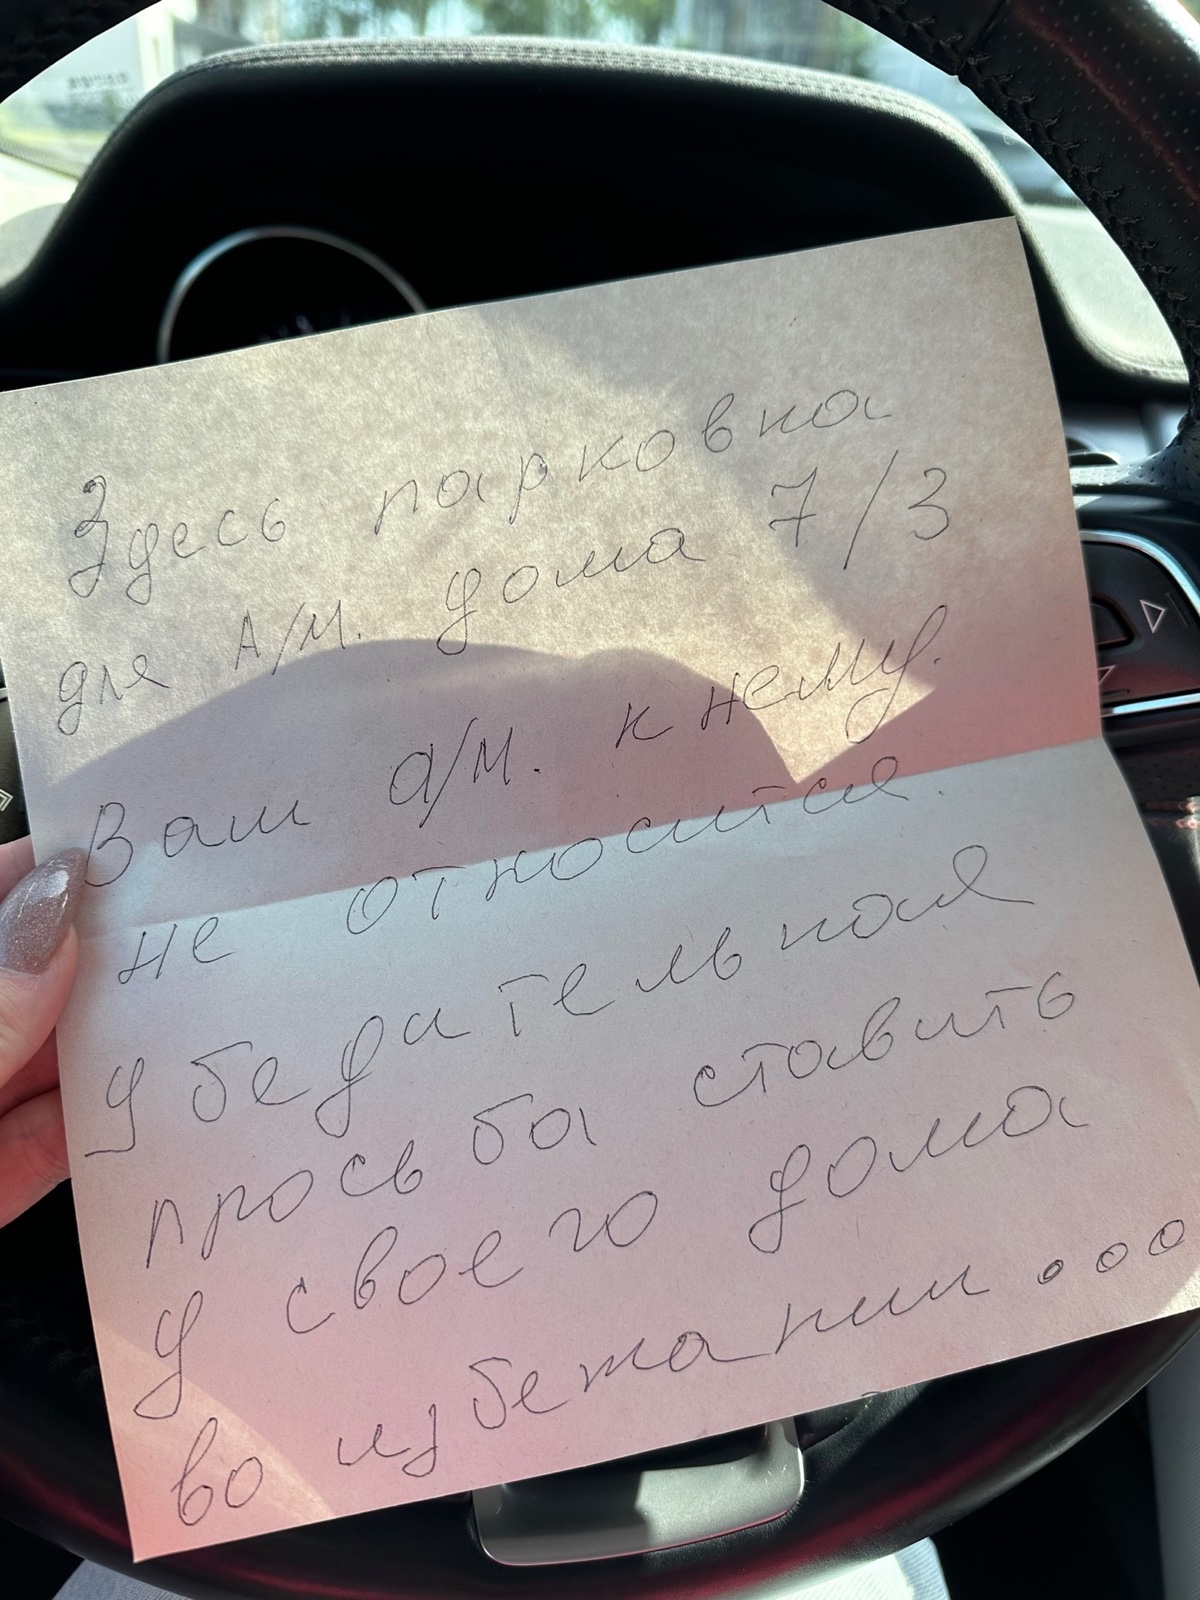 Здесь парковка
для А/М. дома 7/3
Ваш а/м. к нему.
не относится.
Убедительная
просьба ставить
у своего дома
во избежании...